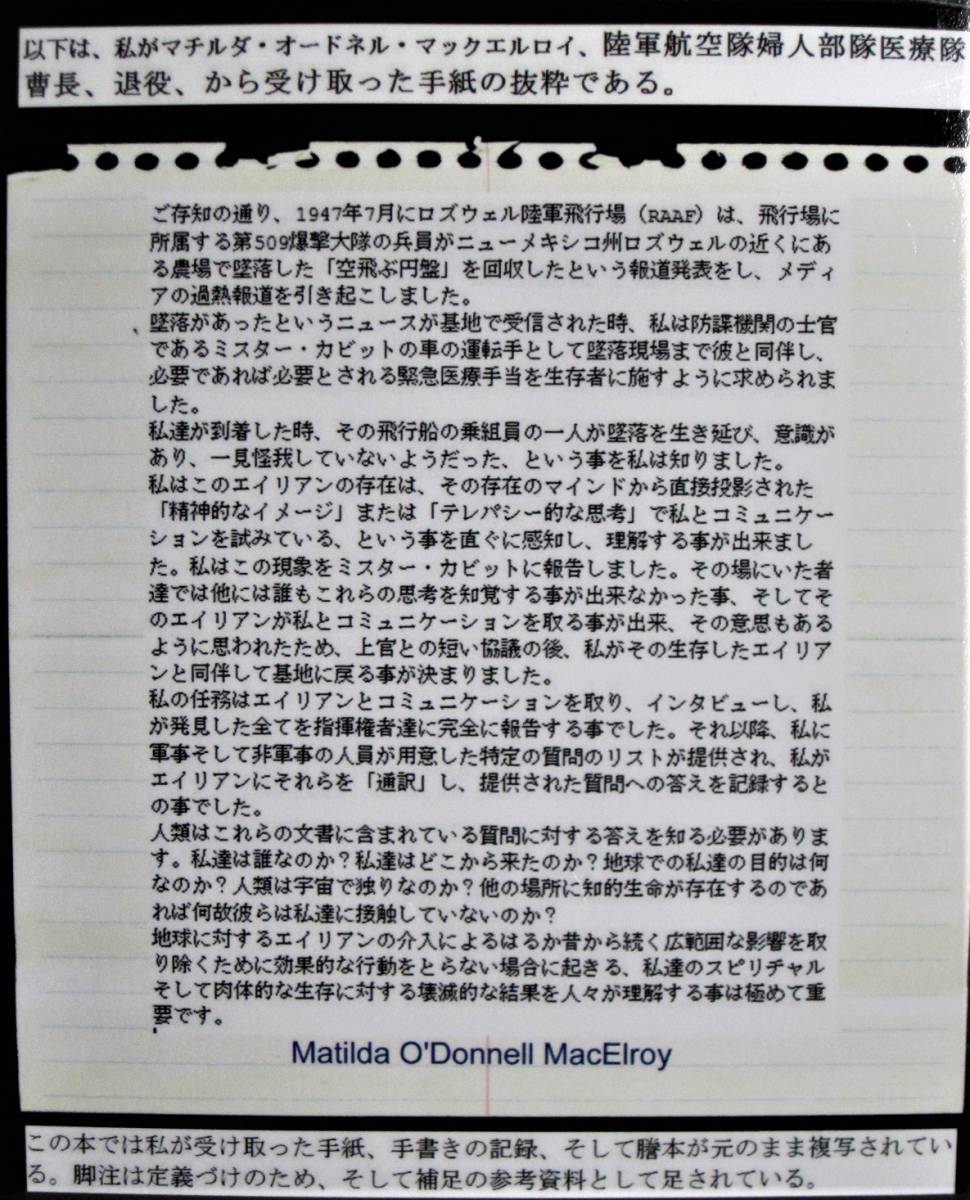 以下は、私がマチルダ・オードネル・マックエルロイ、陸軍航空隊婦人部隊医療隊
曹長、退役、から受け取った手紙の抜粋である。
ご存知の通り、1947年7月にロズウェル陸軍飛行場（RAAF）は、飛行場に
所属する第509爆撃大隊の兵員がニューメキシコ州ロズウェルの近くにあ
る農場で墜落した「空飛ぶ円盤」を回収したという報道発表をし、メディ
アの過熱報道を引き起こしました。
墜落があったというニュースが基地で受信された時、私は防諜機関の士官
であるミスター・カビットの車の運転手として墜落現場まで彼と同伴し、
必要であれば必要とされる緊急医療手当を生存者に施すように求められま
した。
私達が到着した時、その飛行船の乗組員の一人が墜落を生き延び、意識が
あり、一見怪我していないようだった、という事を私は知りました。
私はこのエイリアンの存在は、その存在のマインドから直接投影された
「精神的なイメージ」または「テレパシー的な思考」で私とコミュニケー
ションを試みている、という事を直ぐに感知し、理解する事が出来まし
た。私はこの現象をミスター・カビットに報告しました。その場にいた者
達では他には誰もこれらの思考を知覚する事が出来なかった事、そしてそ
のエイリアンが私とコミュニケーションを取る事が出来、その意思もある
ように思われたため、上官との短い協議の後、私がその生存したエイリア
ンと同伴して基地に戻る事が決まりました。
私の任務はエイリアンとコミュニケーションを取り、インタビューし、私
が発見した全てを指揮権者達に完全に報告する事でした。それ以降、私に
軍事そして非軍事の人員が用意した特定の質問のリストが提供され、私が
エイリアンにそれらを「通訳」し、提供された質問への答えを記録すると
の事でした。
人類はこれらの文書に含まれている質問に対する答えを知る必要がありま
す。私達は誰なのか？私達はどこから来たのか？地球での私達の目的は何
なのか？人類は宇宙で独りなのか？他の場所に知的生命が存在するのであ
れば何故彼らは私達に接触していないのか？
地球に対するエイリアンの介入によるはるか昔から続く広範囲な影響を取
り除くために効果的な行動をとらない場合に起きる、私達のスピリチャル
そして肉体的な生存に対する壊滅的な結果を人々が理解する事は極めて重
要です。
Matilda O'Donnell MacElroy
この本では私が受け取った手紙、手書きの記録、そして謄本が元のまま複写されてい
る。脚注は定義づけのため、そして補足の参考資料として足されている。